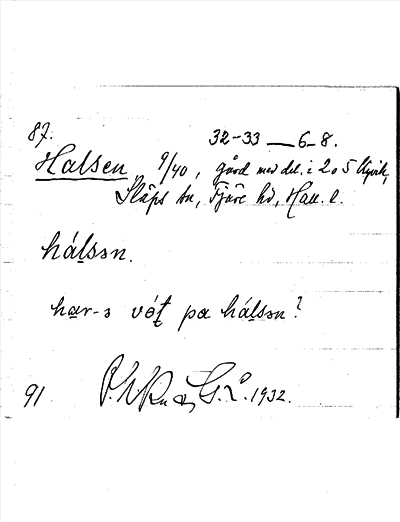 87.
32-33 — 6-8.
Halsen 9/40, gård med del. i 2 o 5
Släps sn, Fjäre hd, Hall. l.
hálsən.
har-ɜ vót pa hálsən?
91 1932.